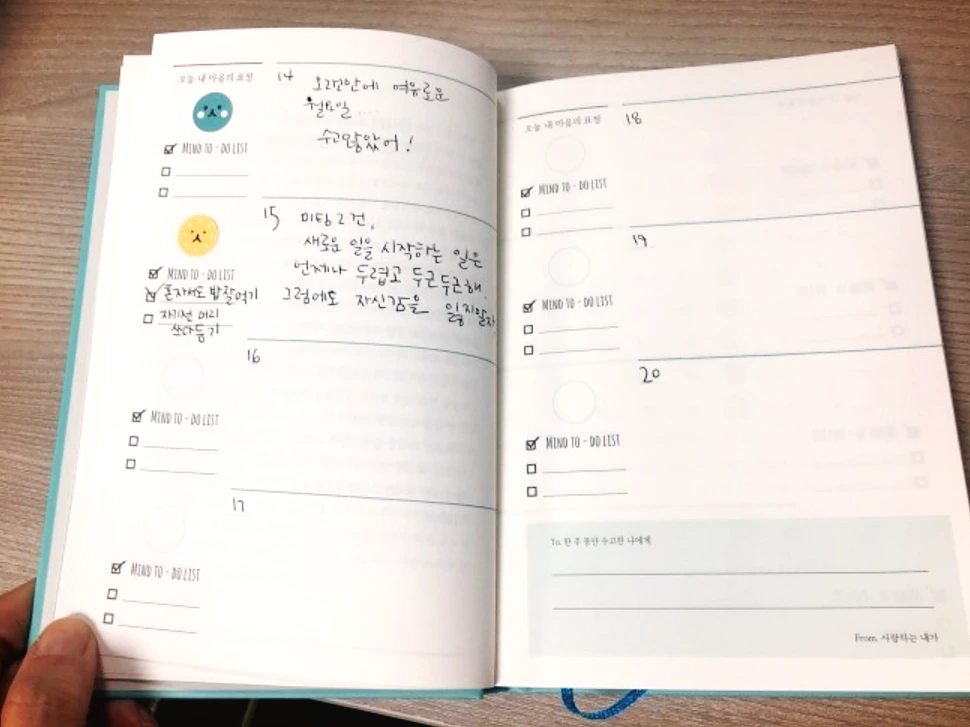 오늘 내 마음의 표정
14 오랜만에 여유로운
월요일...
수고많았어!
MIND TO-DO LIST
15 미팅 2건,
새로운 일을 시작하는 일은
언제나 두렵고 두근두근해.
그럼에도 자신감을 잃지말자.
MIND TO-DO LIST
혼자서도 밥 잘 먹기
자기전 머리
쓰다듬기
16
MIND TO-DO LIST
17
MIND TO-DO LIST
오늘 내 마음의 표정
18
MIND TO-DO LIST
19
MIND TO-DO LIST
20
MIND TO-DO LIST
To. 한 주 동안 수고한 나에게
From. 사랑하는 내가